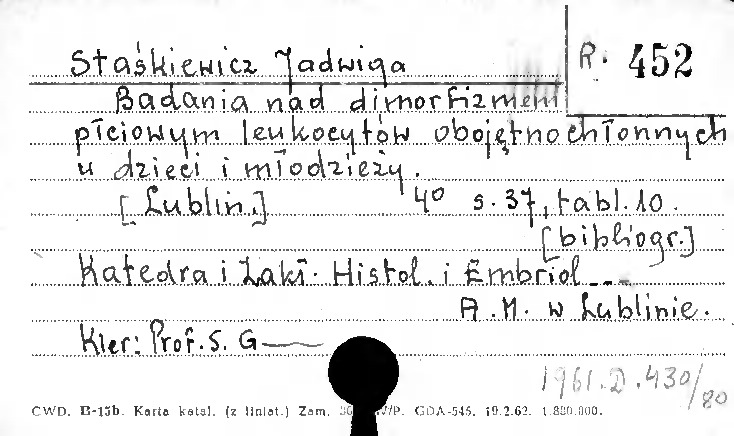 Staśkiewicz Jadwiga
R. 452
Badania nad dimorfizmem
płciowym leukocytów obojętnochłonnych
u dzieci i młodzieży.
[Lublin.] 4° s. 37, tabl. 10.
[bibliogr.]
Katedra i Zakł. Histol. i Embriol...
A.M. w Lublinie.
Kier: Prof. S. G
1961.D.430/80
CWD. B-15b. Karta katal. (z liniat.) Zam. GDA-545. 19.2.62. 1.880.000.